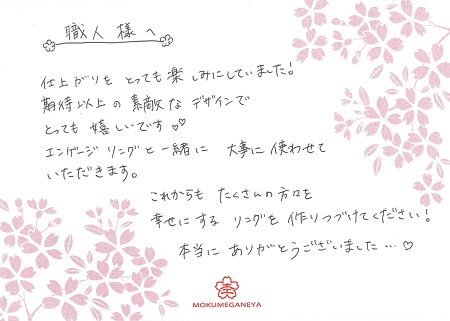 職人様へ
仕上がりを とっても楽しみにしていました!
期待以上の 素敵な デザインで
とっても 嬉しいです♡♡
エンゲージリングと一緒に 大事に使わせて
いただきます。
これからも たくさんの方々を
幸せにする リングを 作りつづけてください!
本当に ありがとうございました…♡
MOKUMEGANEYA